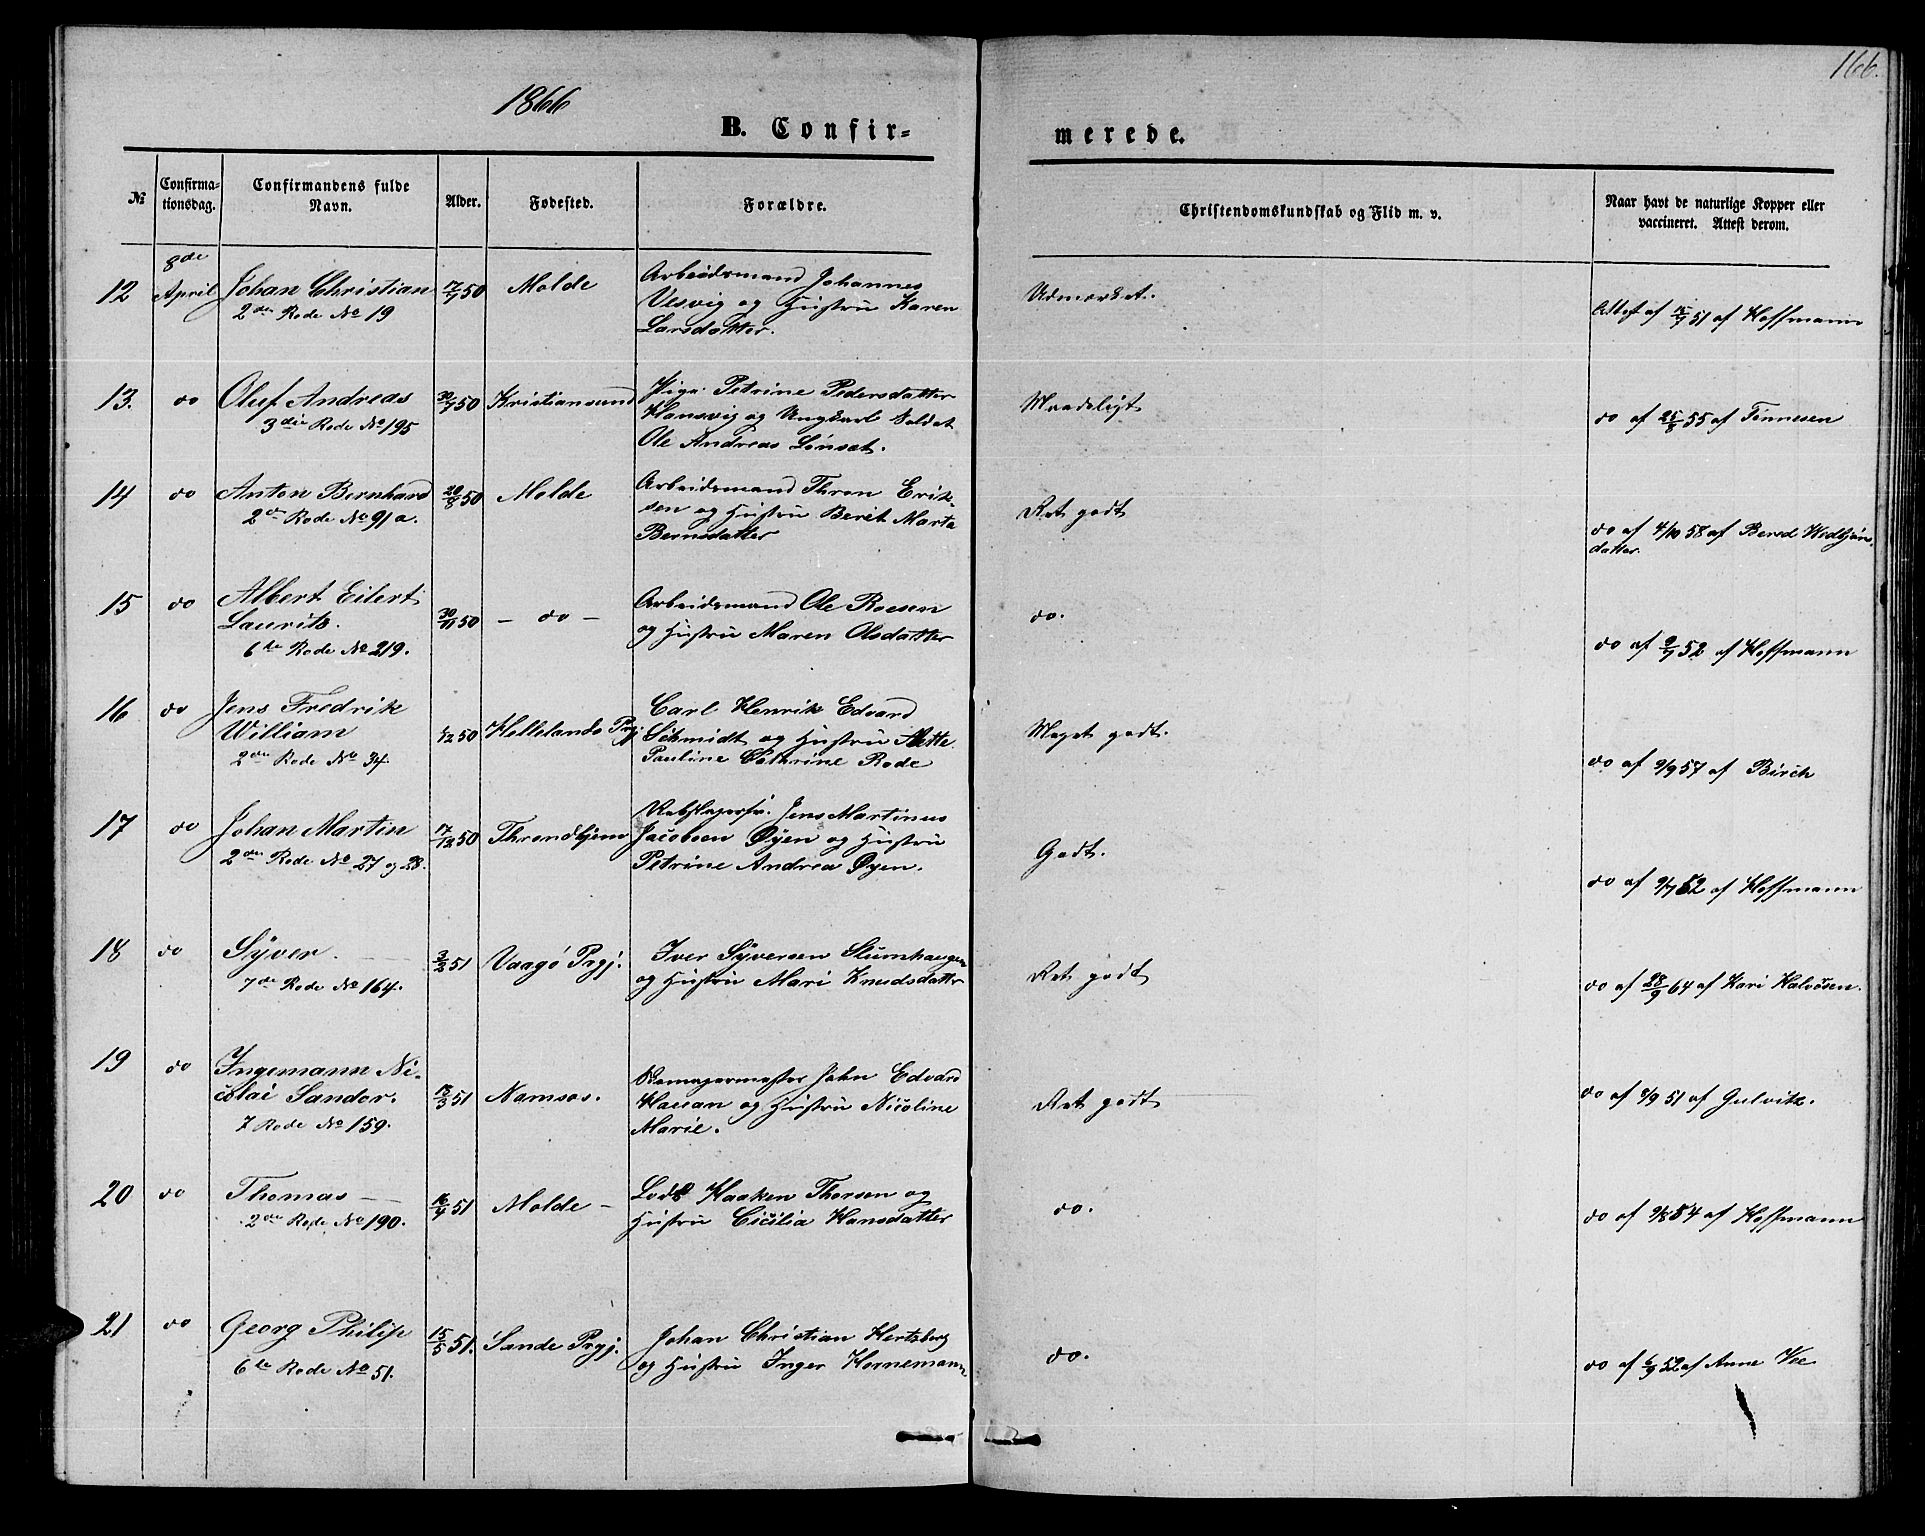 166.
1866
B. Confir-
merede.
№
Confirma-
tionsdag.
Confirmandens fulde
Navn.
Alder.
Fødested.
Forældre.
Christendomskundskab og Flid m. v.
Naar havt de naturlige Kopper eller
vaccineret. Attest derom.
12
8de
April
Johan Christian
2den Rode No 19
17/7 50
Molde
Arbeidsmand Johannes
Vesvig og Hustru Karen
Larsdatter.
Udmærket.
Attest af 15/7 51 af Hoffmann
13.
do
Oluf Andreas
3die Rode No 195
30/7 50
Kristiansund
Pige Petrine Pedersdatter
Hansvig og Ungkarl Soldat
Ole Andreas Lönset.
Maadeligt
do af 25/8 55 af Tönnesen
14
do
Anton Bernhard
2de Rode No 91 a.
20/8 50
Molde
Arbeidsmand Thron Erik-
sen og Hustru Berit Marta
Bernsdatter
Ret godt
do af 4/10 58 af
datter.
15
do
Albert Eilert
Laurits.
6te Rode No 219.
30/11 50
- do -
Arbeidsmand Ole Roesen
og Hustru Maren Olsdatter
do.
do af 9/7 52 af Hoffmann
16
do
Jens Fredrik
William
2den Rode No 34.
50
Hellelands Prgj
Carl Henrik Edvard
Schmidt og Hustru Mette
Pauline Cathrine Rode
Meget godt.
do af 9/9 57 af Birch
17
do
Johan Martin
2den Rode No 27 og 28.
17/12 50
Throndhjem
Rebslagersv. Jens Martinus
Jacobsen Öyen og Hustru
Petrine Andrea Öyen.
Godt.
do af 9/7 52 af Hoffmann
18
do
Syver.
7de Rode No 164.
3/2 51
Vaagö Prgj.
Iver Syversen Slumhaugen
og Hustru Mari Knudsdatter
Ret godt
do af 28/9 64 af Kari Halvösen.
19
do
Ingemann Ni-
colai Sandor.
7 Rode No 159.
13/3 51
Namsos.
Skomagermester John Edvard
Hauan og Hustru Nicoline
Marie.
Ret godt
do af 6/9 51 af Gulvik.
20
do
Thomas -
2den Rode No 190.
16/4 51
Molde -
Lods Haaken Thorsen og
Hustru Cicilia Hansdatter
do.
do af 9/8 54 af Hoffmann
21
do
Georg Philip
6te Rode No 51.
15/5 51.
Sande Prgj.
Johan Christian Hertzberg
og Hustru Inger Hornemann
do.
do af 6/9 52 af Anne Vee